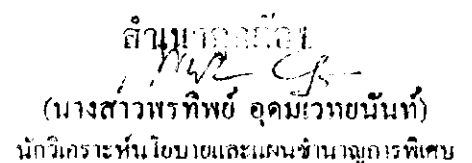 สำเนาถูกต้อง
(นางสาวพรทิพย์ อุดมเวทยนันท์)
นักวิเคราะห์นโยบายและแผนชำนาญการพิเศษ